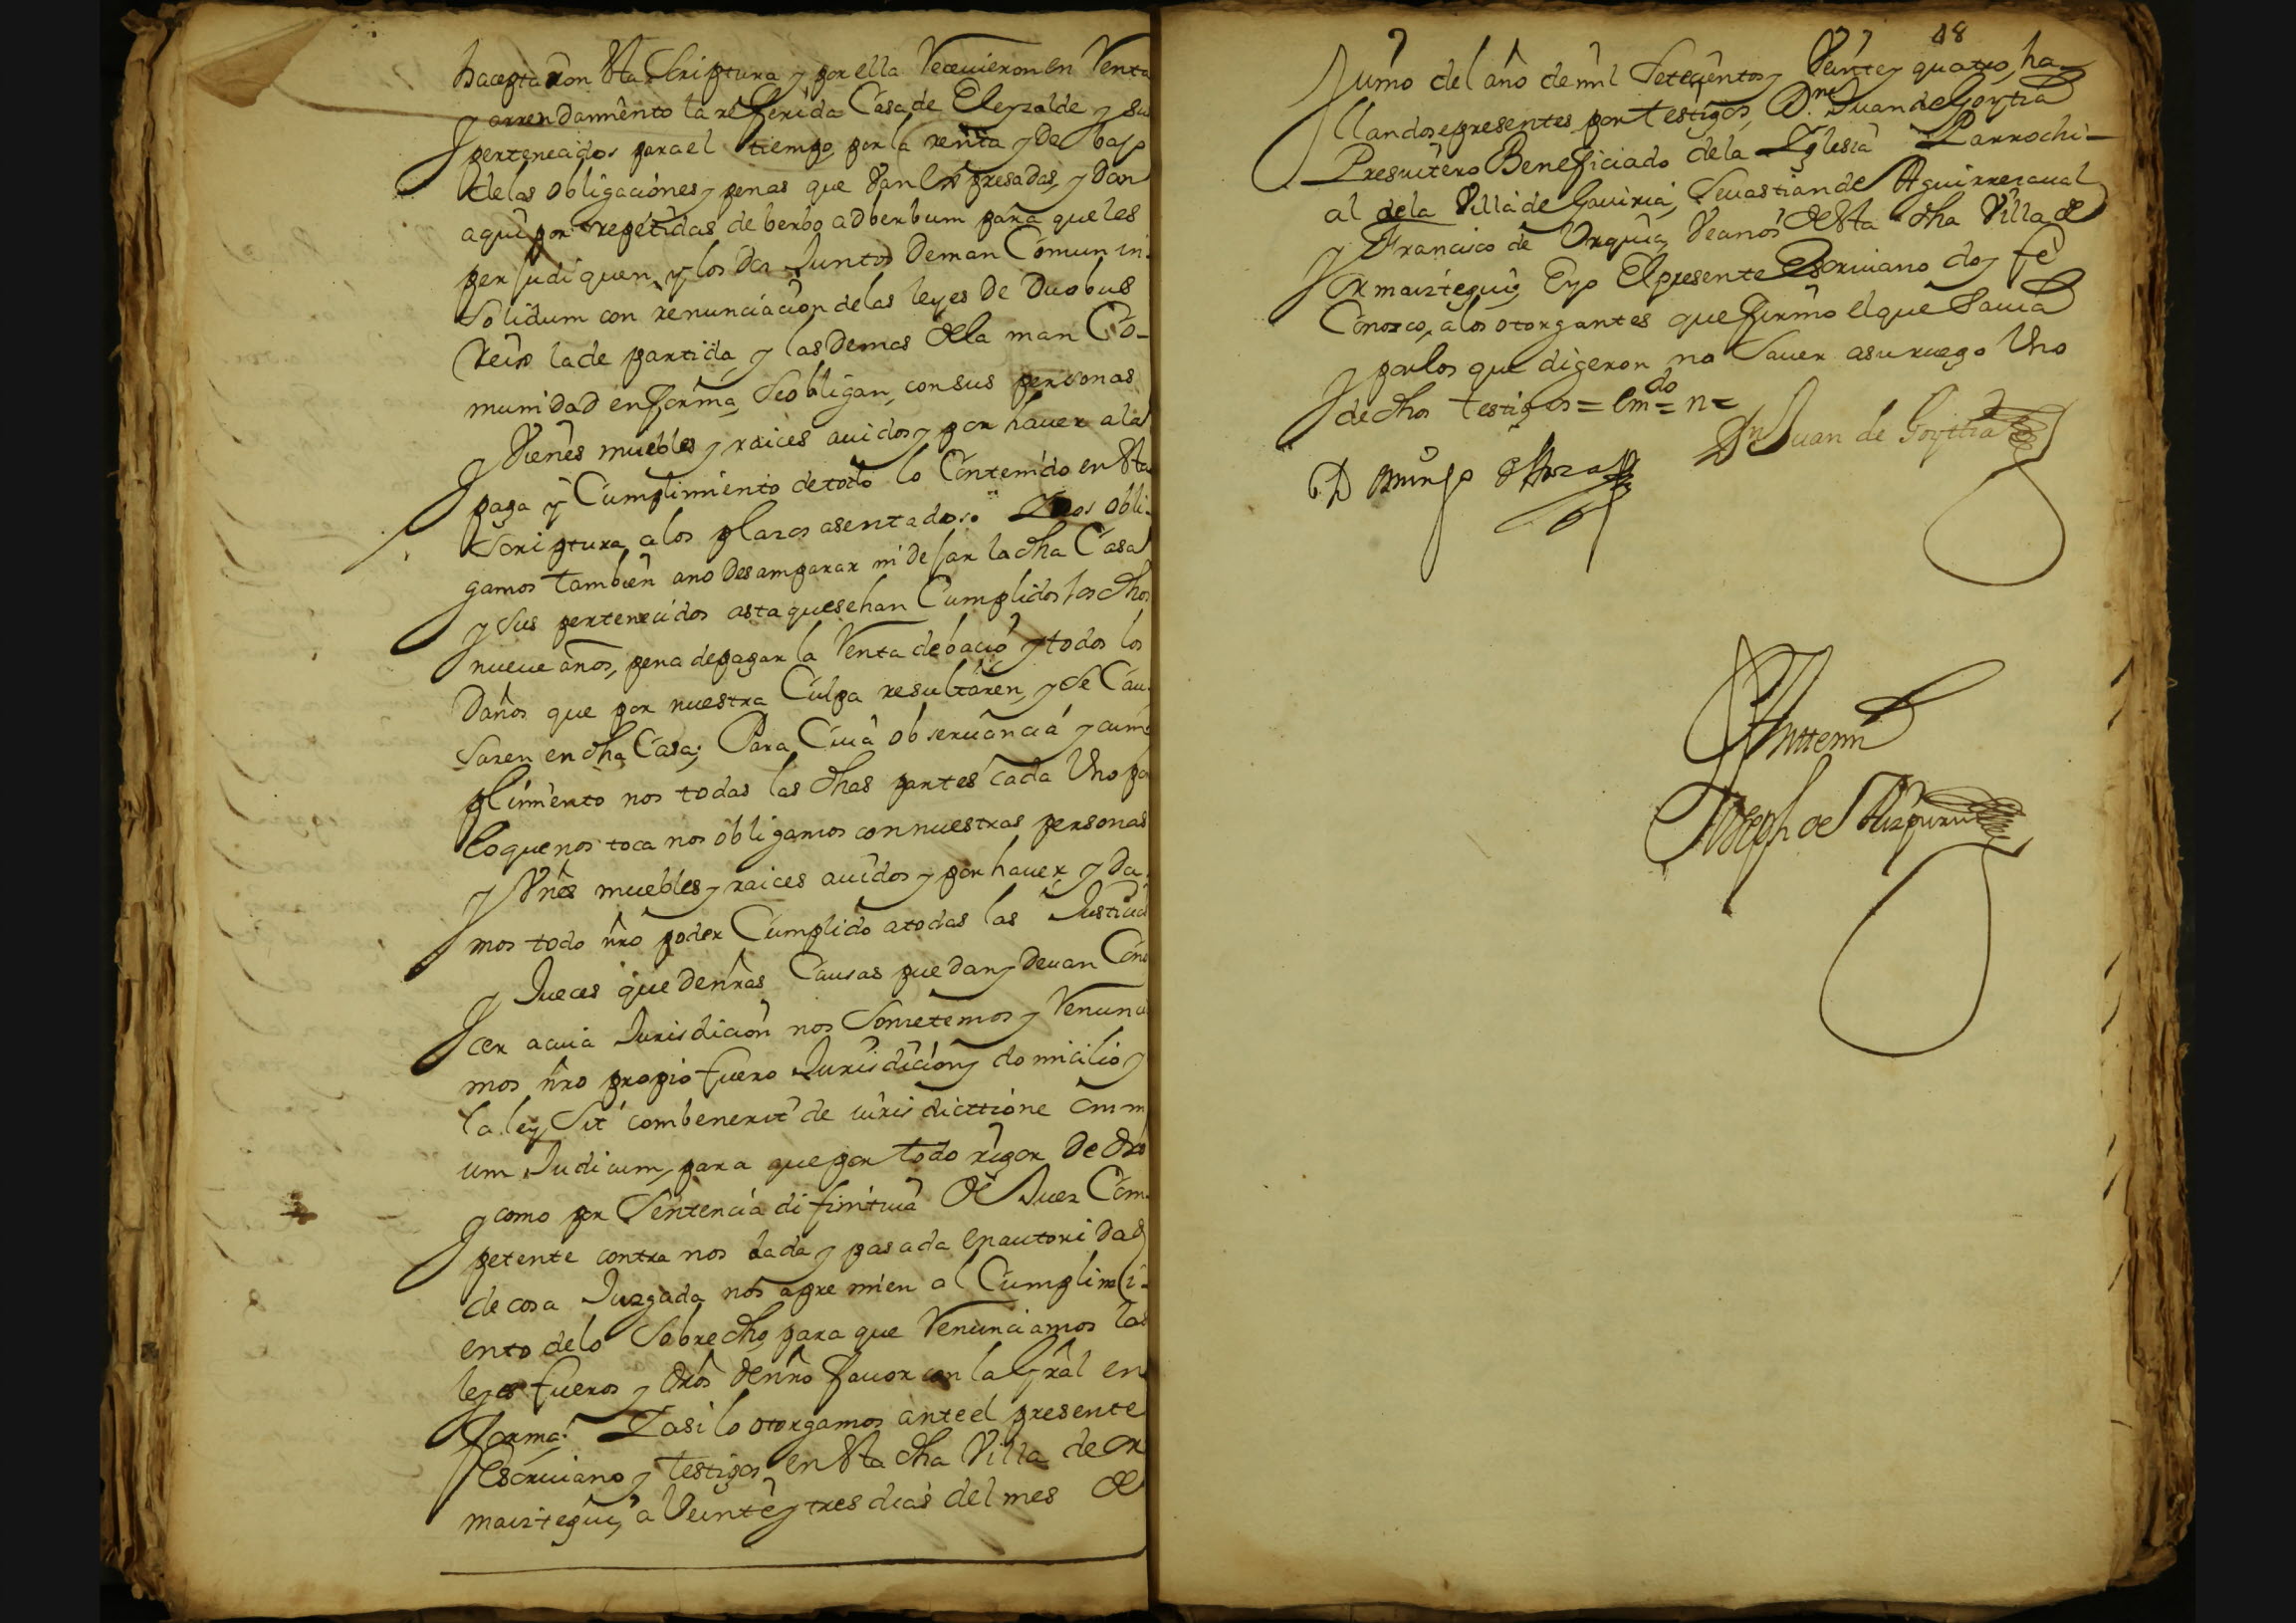 haceptaron esta Scriptura y por ella Receuieron en Renta
y arrendamiento la referida Casa de Eleyzalde y sus
pertenecidos para el tiempo, por la renta y De bajo
de las obligaciones y penas que Van Expresadas, y Dan
aqui por repetidas de berbo adberbum para que les
perjudiquen, y los dos Juntos De man Comun in
Solidum con renunciacion de las leyes De Duobus
Reis la de partida, y las Demas de la man Co-
munidad en forma, Se obligan, con sus personas
y Vienes muebles y raices auidos y por hauer a la
paga y Cumplimiento de todo lo Contenido en esta
Scriptura, a los plazos asentados. Y nos obli-
gamos tambien a no Desamparar ni dejar la dha Casa
y sus pertenecidos asta que sehan Cumplidos los dhos
nueue años, pena de pagar la Renta de bacio y todos los
Daños que por nuestra Culpa resultaren, y se Cau-
saren en dha Casa; Para Cuia obseruancia y cum-
plimiento nos todas las dhas partes cada Uno por
lo que nos toca nos obligamos con nuestras personas
y Vnes muebles y raices auidos y por hauer y Da-
mos todo nro poder Cumplido a todas las Justicias
y Jueces que de nras Causas puedan y Deuan Cono
cer a cuia Jurisdicion nos Sometemos y Renuncia
mos nro propio fuero Jurisdicion y domicilio y
la ley Sit combenerit de iurisdicttione omni
um Judicum, para que por todo rigor de dro
y como por Sentencia difinitiua de Juez Com-
petente contra nos dada y pasada en autoridad
de cosa Juzgada nos apremien al Cumplimi-
ento de lo Sobredho, para que Renunciamos las
leyes fueros y dros de nro fauor con la Gral en
forma; Y asi lo otorgamos ante el presente
Escriuano y testigos en esta dha Villa de Or
maiztegui, a Veinte y tres dias del mes de
18
Junio del año de mil Setecientos y Veinte y quatro, ha-
llandose presentes por testigos, Dn. Juan de Goytia
Presuitero Beneficiado de la Yglesia Parrochi-
al de la Villa de Gauiria, Seuastian de Aguirrezaual
y Francisco de Urquia Vecinos de esta dha Villa de
Ormaiztegui, E yo El presente Escriuano doy fe
Conozco, a los otorgantes que firmo el que Sauia
y por los que digeron no Sauer a su ruego Uno
de dhos testigos = Emdo = n =
Dn Juan de Goytia
Domingo
Antte mi
Joseph de Aizpuru